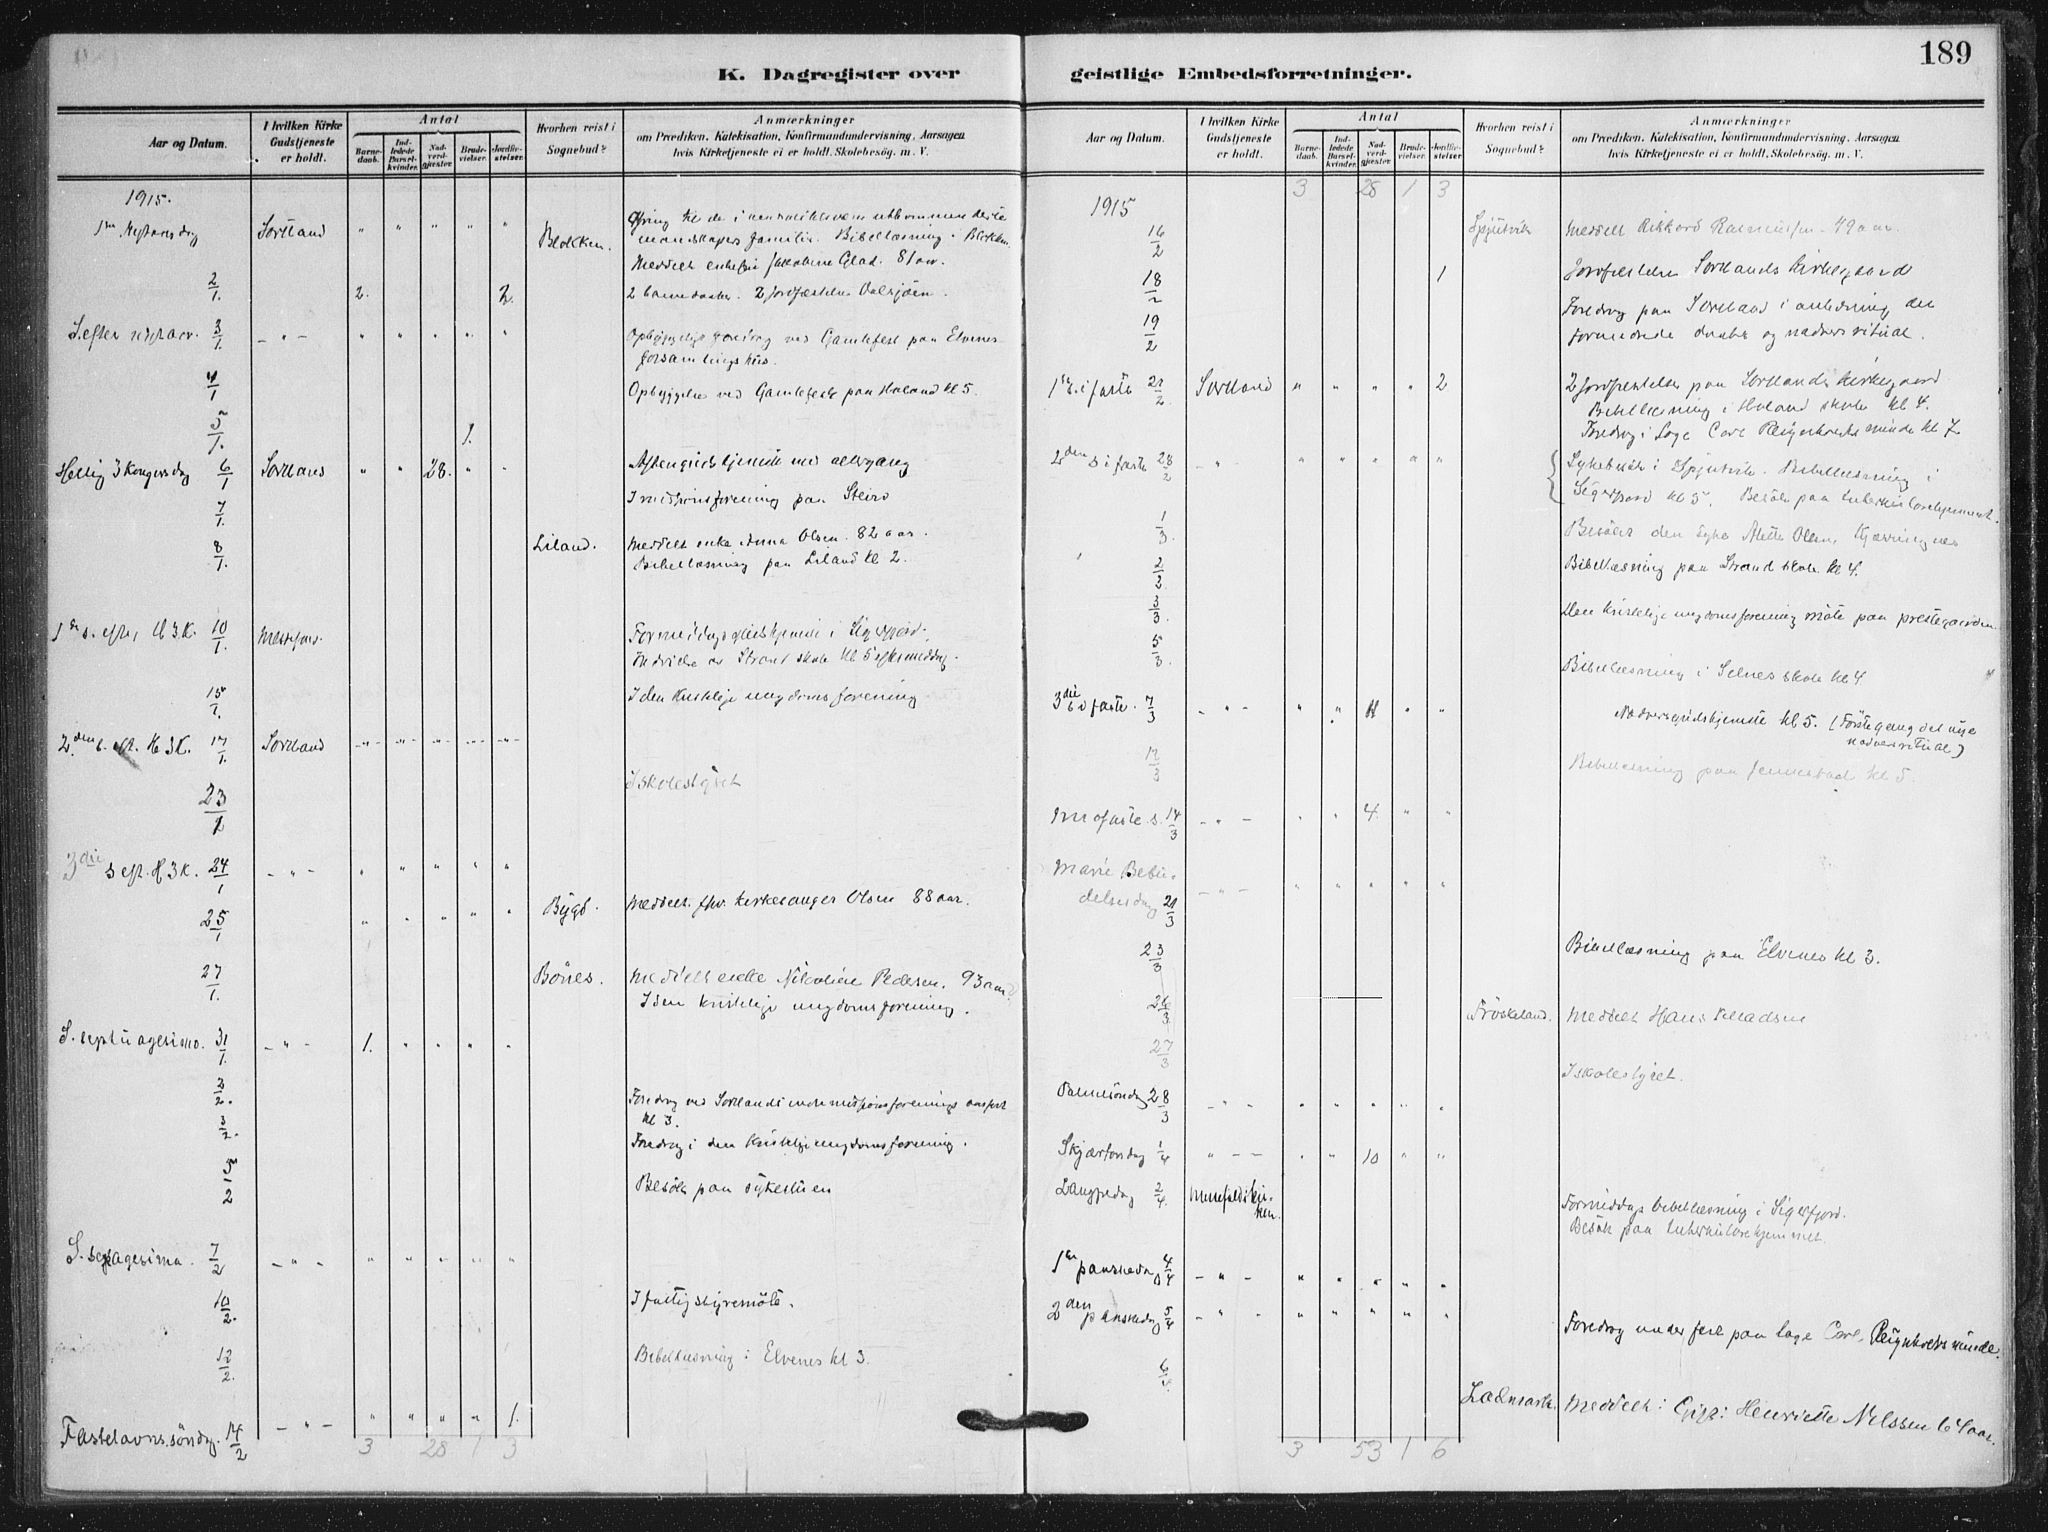 189
K. Dagregister over
Aar og Datum.
I hvilken Kirke Gudstjeneste er holdt.
Antal
Barnedaab.
Indledede Barselkvinder.
Nadverdgjester.
Brudevielser.
Jordfæstelser.
Hvorhen reist i Sognebud?
Anmærkninger
om Prædiken, Katekisation, Konfirmandundervisning, Aarsagen
hvis Kirketjeneste ei er holdt, Skolebesøg, m. V.
1915.
Sortland " " " " "
Blokken.
familie. Bibellæsning i Blokken.
Meddelt Glad. 81 aar.
2/1. 2. 2. 2 barnedaaber. 2 jordfæstelser
S. efter nyttaar. 3/1. - " - " " " " " Opbyggelig foredrag ved Gamlefest paa Elvenes
forsamlingshus.
4/1 Opbyggelse ved Gamlefest paa Holand kl 5.
5/1. 1.
Hellig 3 Kongersdag 6/1 Sortland " " 28. " " Aftengudstjeneste med altergang
7/1. I misjonsforening paa Steiro
8/1. Liland. Meddelt enke Anna Olsen. 82 aar.
Bibellæsning paa Liland kl 2.
1ste s. eft. H 3 K. 10/1. Formiddagsgudstjeneste i Sigerfjord.
Strand skole kl 5 eftermiddag.
15/1. I den kristelige ungdomsforening
2den s. eft. H 3 K. 17/1. Sortland -"- -"- -"- -"- -"-
23/1 I skolestyret
3die s eft. H 3 K. 24/1 - " - " " " " "
25/1 " " " " " Bygd. Meddelt fhv. kirkesanger Olsen 88 aar.
27/1. Bönes. Meddelt enke Nikoline Pedersen. 93 aar.
I den kristelige ungdomsforening.
S. septuagesima. 31/1. - " - 1. " " " "
2/2. Foredrag ved Sortlands indremissionsforenings aarsfest
kl 3.
3/2. Foredrag i den kristelige ungdomsforening.
5/2 Besök paa sykestuen
S. sexagesima. 7/2 - " - " " " " "
10/2. I fattigstyremöte.
12/2. Bibellæsning i Elvenes kl 3.
Fastelavns söndag. 14/2 - " - " " " " 1.
3 28 1 3
geistlige Embedsforretninger.
Aar og Datum.
I hvilken Kirke Gudstjeneste er holdt.
Antal
Barnedaab.
Indledede Barselkvinder.
Nadverdgjester.
Brudevielser.
Jordfæstelser.
Hvorhen reist i Sognebud?
Anmærkninger
om Prædiken, Katekisation, Konfirmandundervisning, Aarsagen
hvis Kirketjeneste ei er holdt, Skolebesög, m. V.
3 28 1 3
1915
16/2 Spjutvik Meddelt Rikkard Rasmussen. 49 aar.
18/2 1 Jordfæstelse Sortlands kirkegaard
19/2 Foredrag paa Sortland i anledning det
daabs og nadversritual.
1ste s. i faste 21/2 Sortland " " " " 2 2 jordfæstelser paa Sortlands kirkegaard
Bibellæsning i Holand skole kl 4.
Foredrag i Loge Carl minde kl 7
2den s i faste 28/2 - " - " " " " " Sykebesök i Spjutvik. Bibellæsning i
Sigerfjord kl 5. Besök paa tuberkulosehjemmet.
1/3. Besöker den syke Mette Olsen, Kjerringnes
2/3. Bibellæsning paa Strand skole kl 4.
3/3. Den kristelige ungdomsforening möte paa prestegaarden.
5/3. Bibellæsning i Selnes skole kl 4
3die s i faste. 7/3 - " - " " 11 " " Nadversgudstjeneste kl 5. (Förste gang det nye
nadversritual)
12/3 Bibellæsning paa Jennestad kl 5.
Midfaste. s. 14/3 - " - " " 4. " "
Marie Bebudelsesdag 21/3 - " - " " " " "
23/3 Bibellæsning paa Elvenes kl 3.
26/3. Fröskeland. Meddelt Hans Madsen
27/3 I skolestyret.
Palmesöndag 28/3 - " - " " " " "
Skjærtorsdag 1/4 " - - " " 10 " "
Langfredag 2/4. Formiddags bibellæsning i Sigerfjord.
Besök paa tuberkulosehjemmet.
1ste paaskedag 4/4 - " - " " " " "
2den paaskedag 5/4 - " - " " " " "
Foredrag under fest paa loge Carl minde.
6/4. Meddelt: Gift: Henriette Nilssen 64 aar.
3 53 1 6